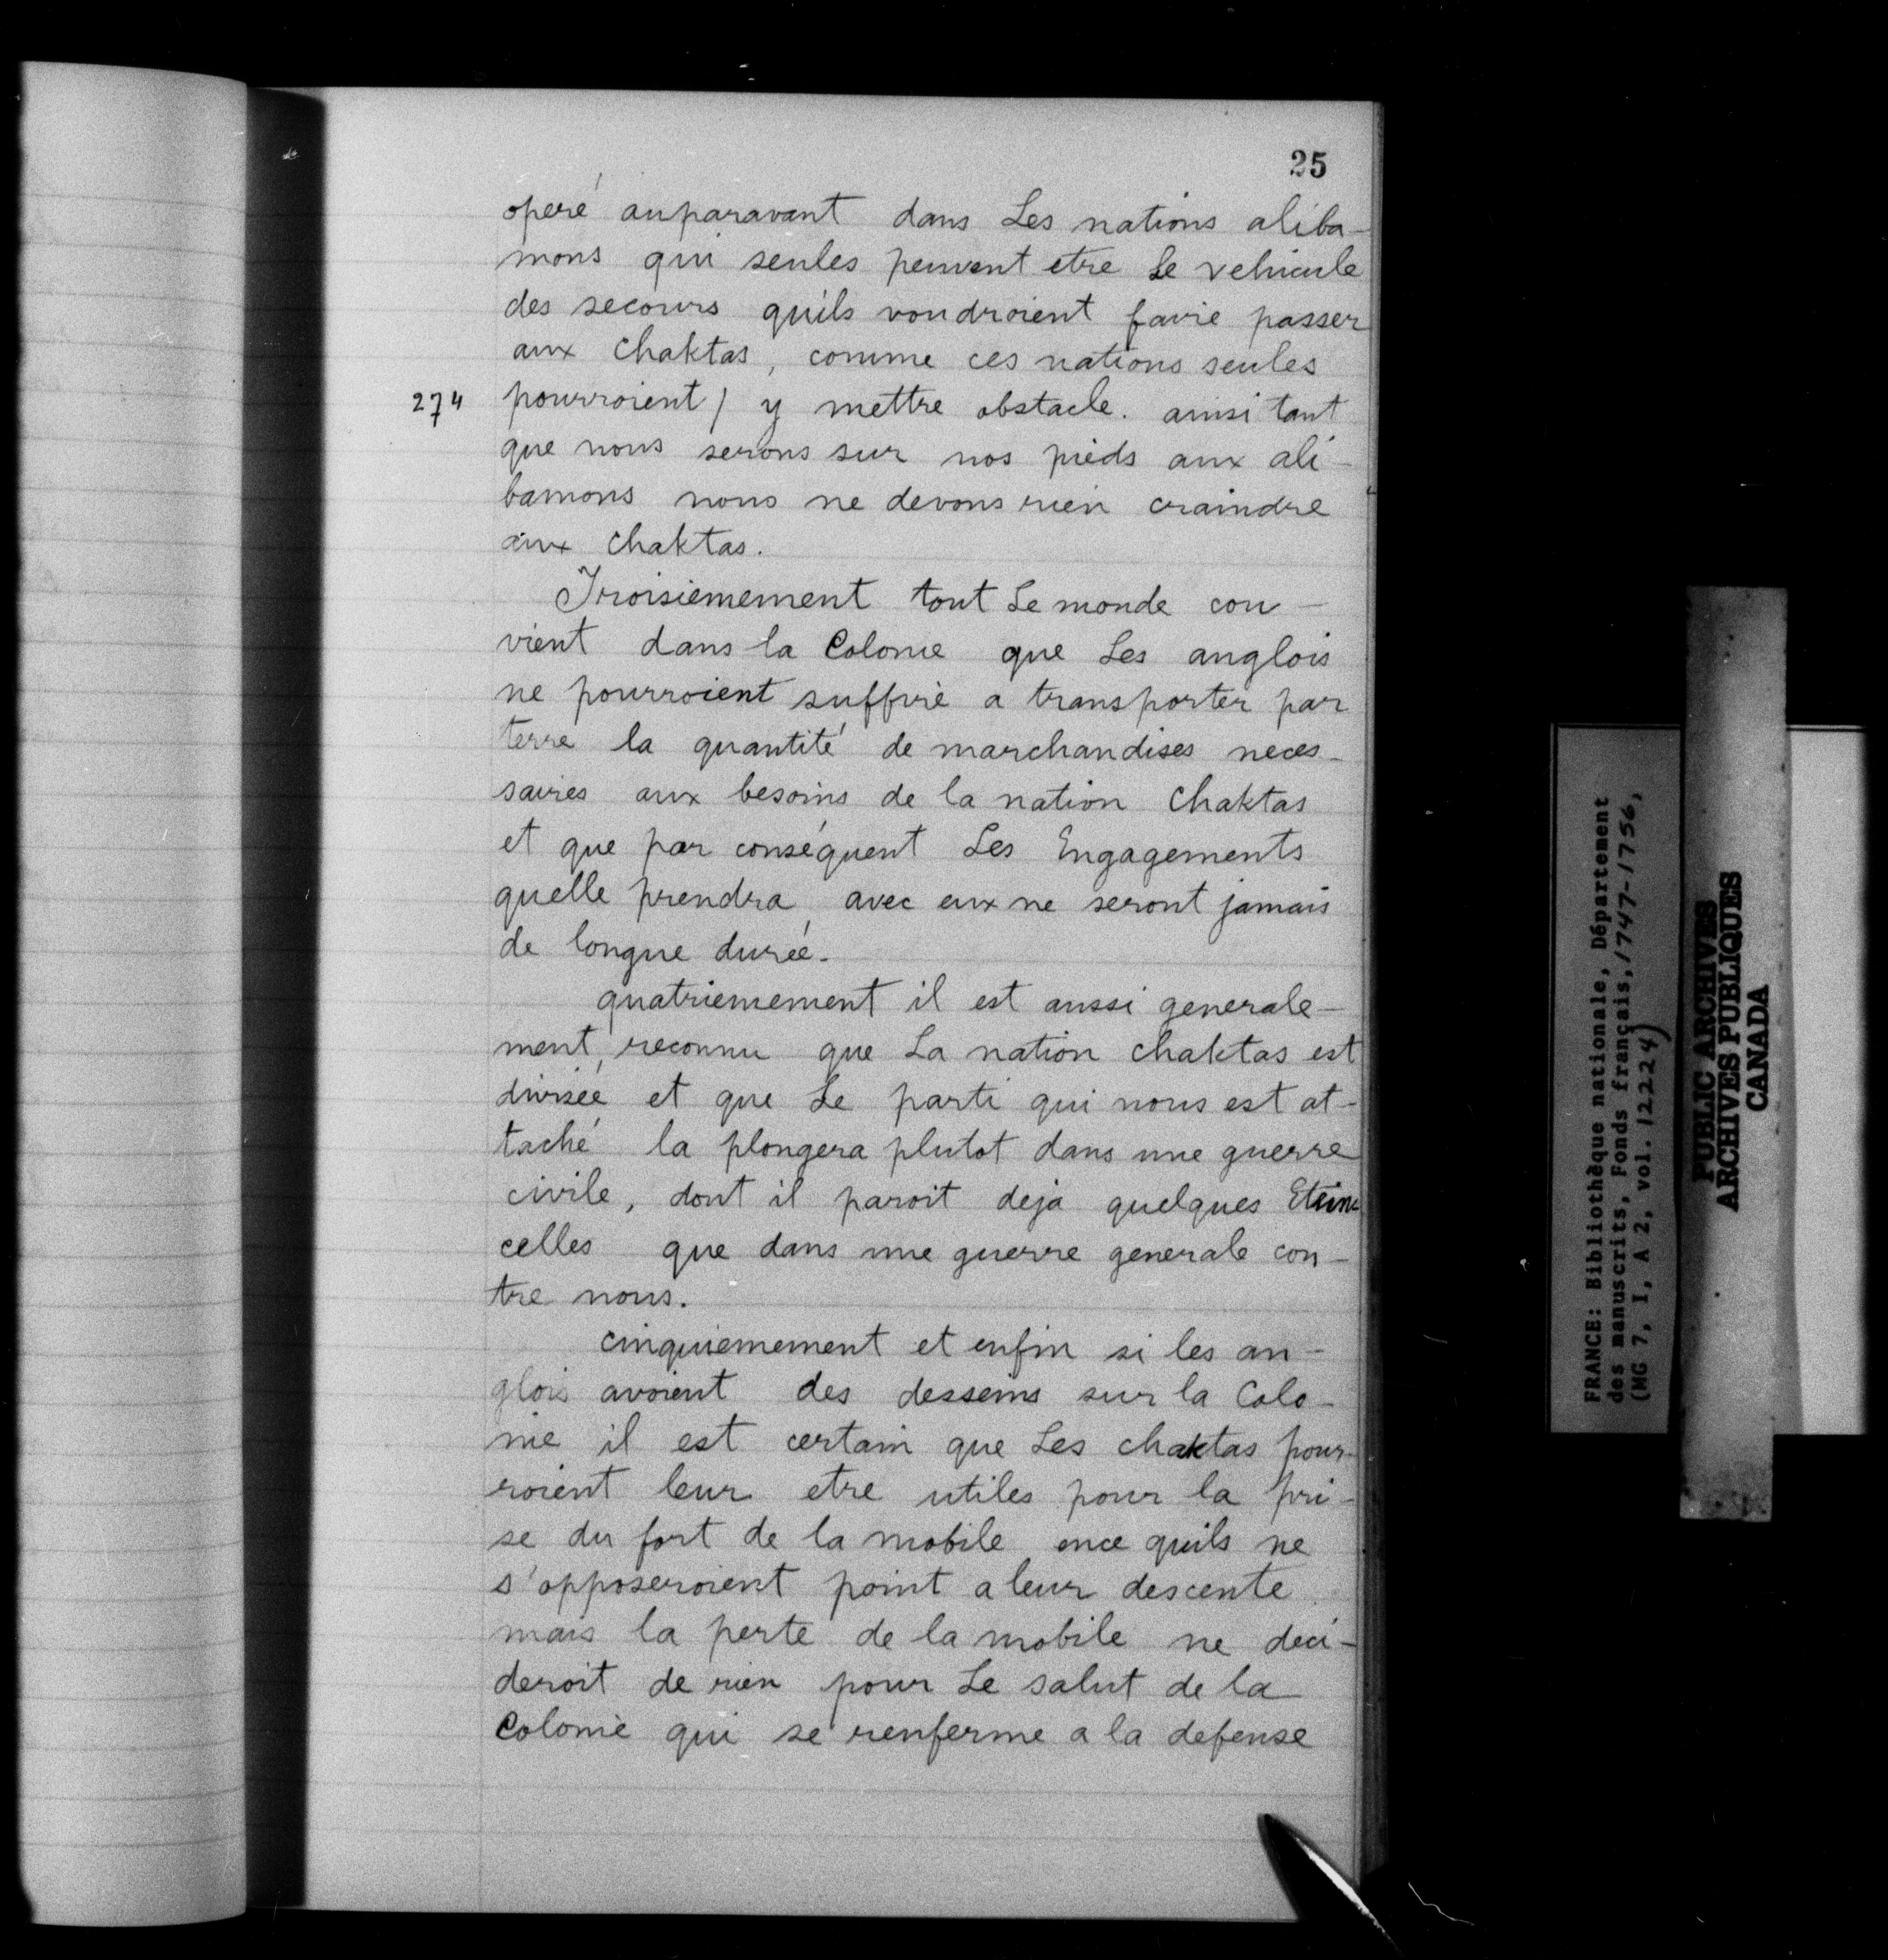 25
operé auparavant dans Les nations aliba-
mons qui seules peuvent etre Le vehicule
des secours quils voudroient faire passer
aux Chaktas, comme ces nations seules
274 pourroient / y mettre obstacle. ainsi tant
que nous serons sur nos pieds aux ali-
bamons nous ne devons rien craindre
aux Chaktas.
Troisiemement tout Le monde con-
vient dans la Colonie que Les anglois
ne pourroient suffire a transporter par
terre la quantité de marchandises neces-
saires aux besoins de la nation Chaktas
et que par conséquent Les Engagements
quelle prendra avec eux ne seront jamais
de longue durée.
quatriemement il est aussi generale-
ment reconnu que La nation chaktas est
divisée et que Le parti qui nous est at-
taché la plongera plutot dans une guerre
civile, dont il paroit deja quelques Etin
celles que dans une guerre generale con-
tre nous.
cinquiemement et enfin si les an-
glois avoient des desseins sur la Colo-
nie il est certain que Les chaktas pour-
roient leur etre utiles pour la pri-
se du fort de la mobile ence quils ne
s'opposeroient point a leur descente
mais la perte de la mobile ne deci-
deroit de rien pour Le salut de la
Colonie qui se renferme a la defense
FRANCE: Bibliothèque nationale, Département
des manuscrits, Fonds français, 1747-1756,
(MG 7, I, A 2, vol. 12224)
PUBLIC ARCHIVES
ARCHIVES PUBLIQUES
CANADA